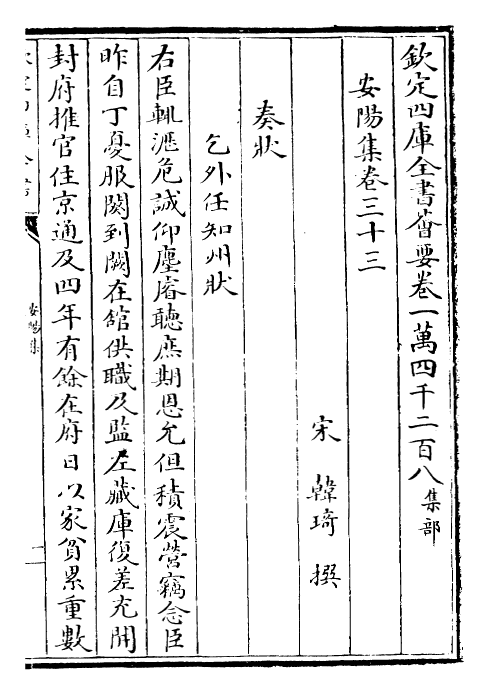 欽定四庫全書薈要卷一萬四千二百八集部
安陽集卷三十三
宋韓琦撰
奏狀
乞外任知州狀
右臣輒瀝危誠仰塵睿聽庶期恩允但積震營竊念臣
昨自丁憂服闋到闕在館供職及監左藏庫復差充開
封府推官住京通及四年有餘在府日以家貧累重數
安陽集